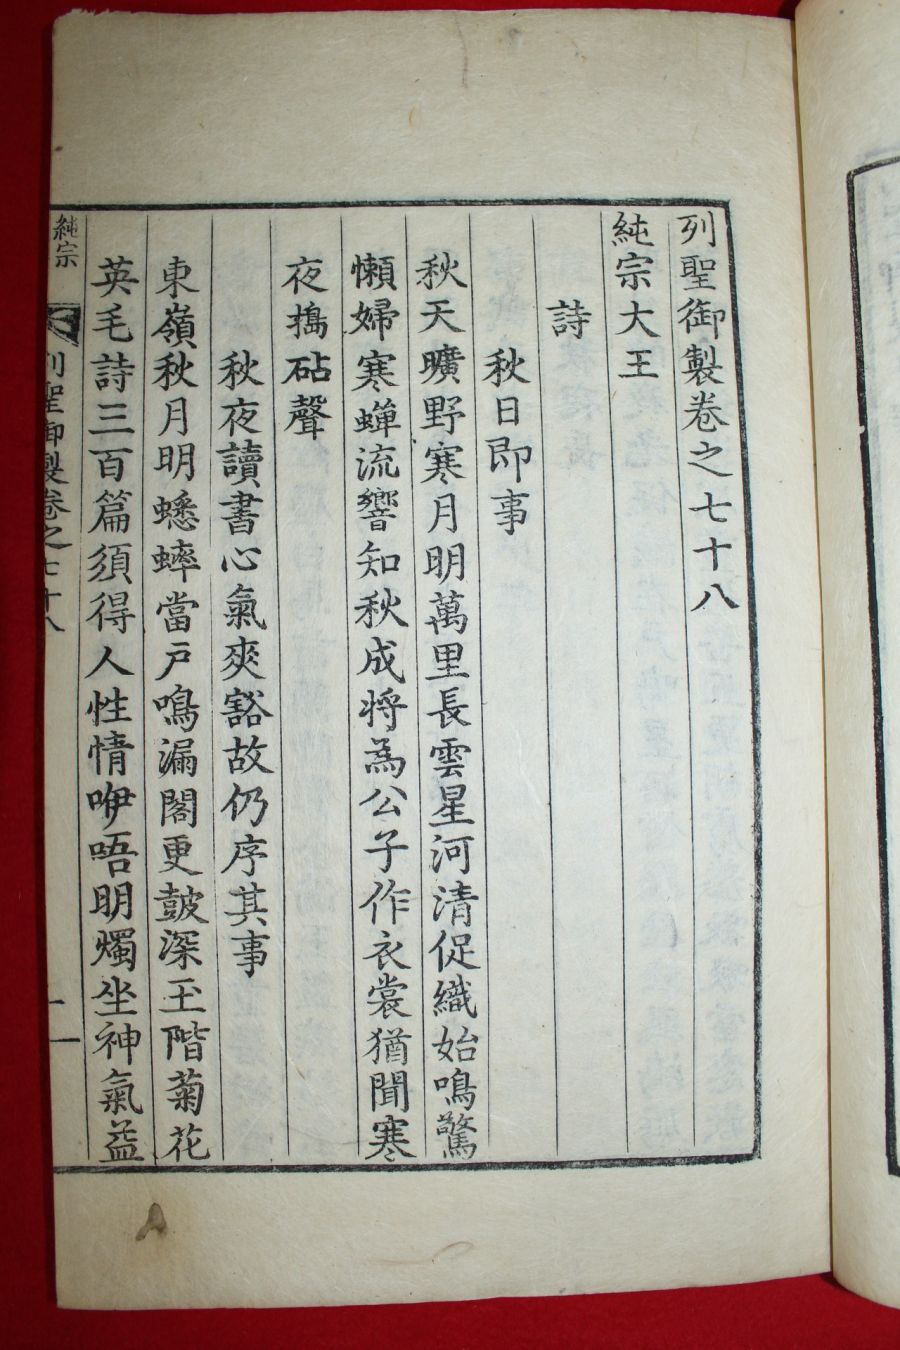 列聖御製卷之七十八
純宗大王
詩
秋日即事
秋天曠野寒月明萬里長雲星河清促織始鳴驚
懶婦寒蟬流響知秋成將為公子作衣裳猶聞寒
夜搗砧聲
秋夜讀書心氣爽豁故仍序其事
東嶺秋月明蟋蟀當戶鳴漏閣更鼓深玉階菊花
英毛詩三百篇須得人性情咿唔明燭坐神氣益
純宗
列聖御製卷之七十八
一